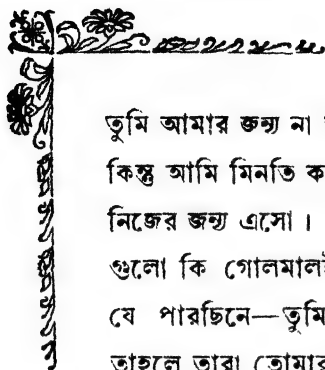 তুমি আমার জন্য না
কিন্তু আমি মিনতি ক
নিজের জন্য এসো।
গুলো কি গোলমাল
যে পারছিনে—তুমি
তাহলে তারা তোমার